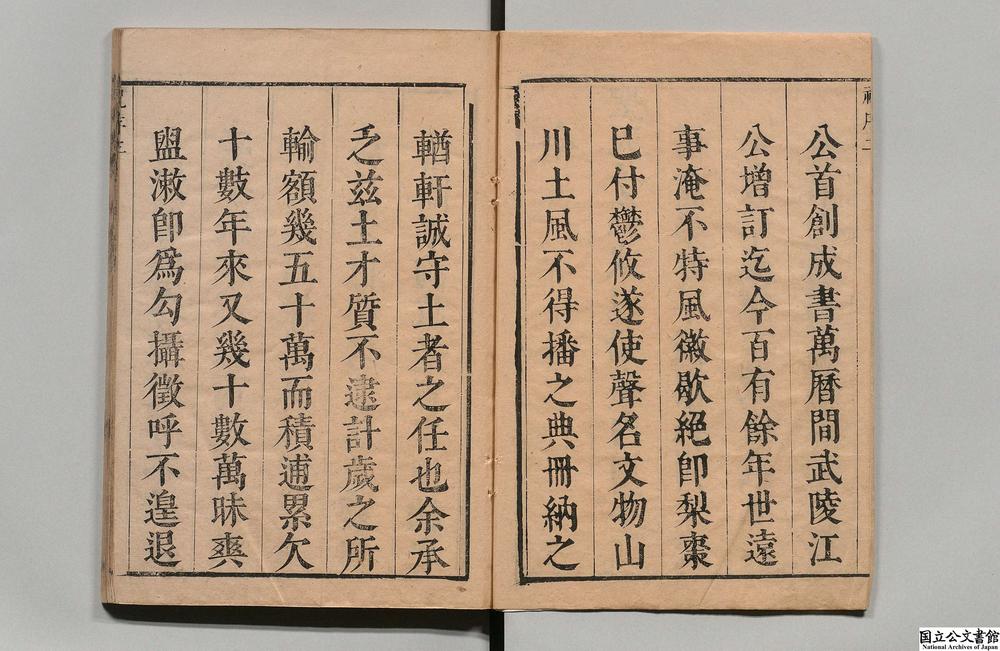 公首創成書萬曆間武陵江
公增訂迄今百有餘年世遠
事淹不特風徽歇絕卽梨棗
巳付鬱攸遂使聲名文物山
川土風不得播之典冊納之
輶軒誠守土者之任也余承
乏兹土才質不逮計歲之所
輸額幾五十萬而積逋累欠
十數年來又幾十數萬昧爽
盥漱卽爲勾攝徵呼不遑退
国立公文書館
National Archives of Japan